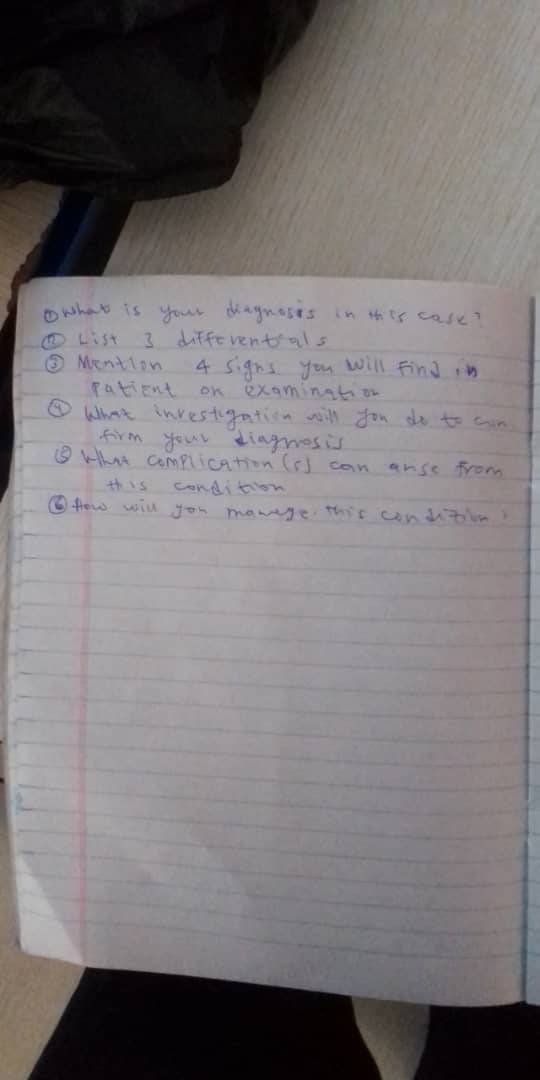 ① What is your diagnosis in this case?
② List 3 differentials
③ Mention 4 signs you will find in
patient on examination
④ What investigation will you do to con
firm your diagnosis
⑤ What complication(s) can arise from
this condition
⑥ How will you manage this condition?